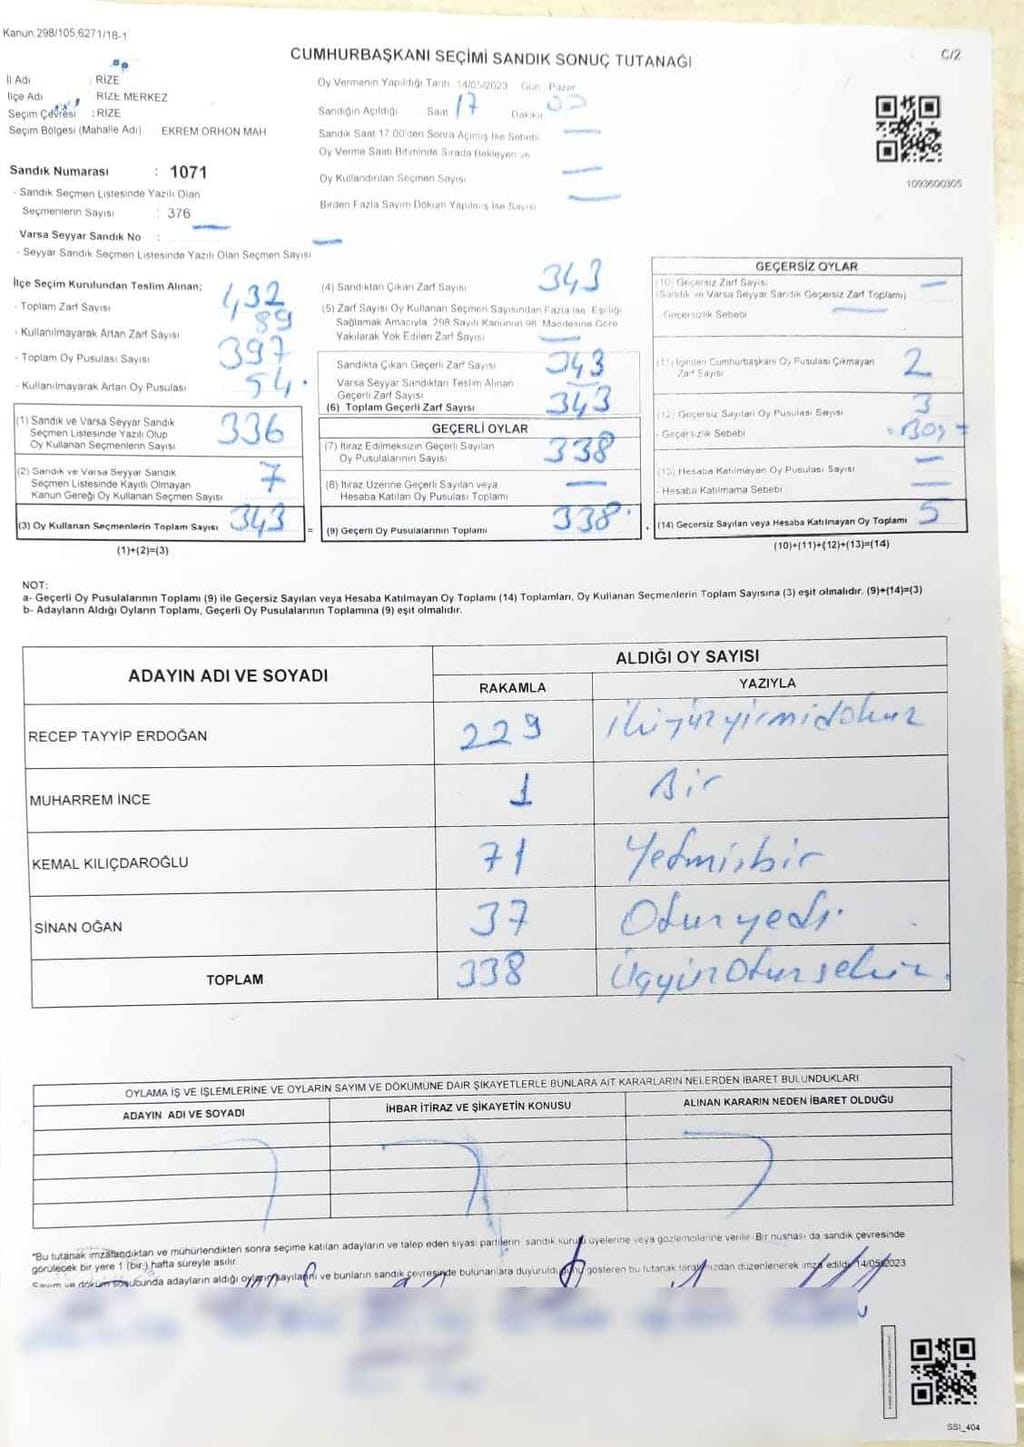 Kanun.298/105,6271/18-1
CUMHURBAŞKANI SEÇİMİ SANDIK SONUÇ TUTANAĞI
C/2
İl Adı : RİZE
İlçe Adı RİZE MERKEZ
Seçim Çevresi : RİZE
Seçim Bölgesi (Mahalle Adı) EKREM ORHON MAH
Sandık Numarası : 1071
- Sandık Seçmen Listesinde Yazılı Olan
Seçmenlerin Sayısı : 376
Varsa Seyyar Sandık No : —
- Seyyar Sandık Seçmen Listesinde Yazılı Olan Seçmen Sayısı —
Oy Vermenin Yapıldığı Tarih 14/05/2023 Gün Pazar
Sandığın Açıldığı Saat 17 Dakika
Sandık Saat 17:00'den Sonra Açılmış İse Sebebi —
Oy Verme Saati Bitiminde Sırada Bekleyen ve
Oy Kullandırılan Seçmen Sayısı —
Birden Fazla Sayım Döküm Yapılmış İse Sayısı —
1093600305
İlçe Seçim Kurulundan Teslim Alınan;
- Toplam Zarf Sayısı 432
- Kullanılmayarak Artan Zarf Sayısı 89
- Toplam Oy Pusulası Sayısı 397
- Kullanılmayarak Artan Oy Pusulası 54
(1) Sandık ve Varsa Seyyar Sandık
Seçmen Listesinde Yazılı Olup
Oy Kullanan Seçmenlerin Sayısı 336
(2) Sandık ve Varsa Seyyar Sandık
Seçmen Listesinde Kayıtlı Olmayan
Kanun Gereği Oy Kullanan Seçmen Sayısı 7
(3) Oy Kullanan Seçmenlerin Toplam Sayısı 343 =
(1)+(2)=(3)
(4) Sandıktan Çıkan Zarf Sayısı 343
(5) Zarf Sayısı Oy Kullanan Seçmen Sayısından Fazla İse, Eşitliği
Sağlamak Amacıyla, 298 Sayılı Kanunun 98. Maddesine Göre
Yakılarak Yok Edilen Zarf Sayısı —
Sandıkta Çıkan Geçerli Zarf Sayısı 343
Varsa Seyyar Sandıktan Teslim Alınan
Geçerli Zarf Sayısı —
(6) Toplam Geçerli Zarf Sayısı 343
GEÇERLİ OYLAR
(7) İtiraz Edilmeksizin Geçerli Sayılan
Oy Pusulalarının Sayısı 338
(8) İtiraz Üzerine Geçerli Sayılan veya
Hesaba Katılan Oy Pusulası Toplamı —
(9) Geçerli Oy Pusulalarının Toplamı 338
GEÇERSİZ OYLAR
(10) Geçersiz Zarf Sayısı —
(Sandık ve Varsa Seyyar Sandık Geçersiz Zarf Toplamı)
- Geçersizlik Sebebi —
(11) İçinden Cumhurbaşkanı Oy Pusulası Çıkmayan
Zarf Sayısı 2
(12) Geçersiz Sayılan Oy Pusulası Sayısı 3
- Geçersizlik Sebebi
(13) Hesaba Katılmayan Oy Pusulası Sayısı —
- Hesaba Katılmama Sebebi —
(14) Geçersiz Sayılan veya Hesaba Katılmayan Oy Toplamı 5
(10)+(11)+(12)+(13)=(14)
NOT:
a- Geçerli Oy Pusulalarının Toplamı (9) ile Geçersiz Sayılan veya Hesaba Katılmayan Oy Toplamı (14) Toplamları, Oy Kullanan Seçmenlerin Toplam Sayısına (3) eşit olmalıdır. (9)+(14)=(3)
b- Adayların Aldığı Oyların Toplamı, Geçerli Oy Pusulalarının Toplamına (9) eşit olmalıdır.
ADAYIN ADI VE SOYADI
ALDIĞI OY SAYISI
RAKAMLA YAZIYLA
RECEP TAYYİP ERDOĞAN 229 ikiyüzyirmidokuz
MUHARREM İNCE 1 Bir
KEMAL KILIÇDAROĞLU 71 Yetmişbir
SİNAN OĞAN 37 Otuzyedi
TOPLAM 338 Üçyüzotuzsekiz
OYLAMA İŞ VE İŞLEMLERİNE VE OYLARIN SAYIM VE DÖKÜMÜNE DAİR ŞİKAYETLERLE BUNLARA AİT KARARLARIN NELERDEN İBARET BULUNDUKLARI
ADAYIN ADI VE SOYADI İHBAR İTİRAZ VE ŞİKAYETİN KONUSU ALINAN KARARIN NEDEN İBARET OLDUĞU
*Bu tutanak imzalandıktan ve mühürlendikten sonra seçime katılan adayların ve talep eden siyasi partilerin, sandık kurulu üyelerine veya gözlemcilerine verilir. Bir nüshası da sandık çevresinde
görülecek bir yere 1 (bir) hafta süreyle asılır.
Sayım ve döküm sonucunda adayların aldığı oyların sayılarını ve bunların sandık çevresinde bulunanlara duyurulduğunu gösteren bu tutanak tarafımızdan düzenlenerek imza edildi. 14/05/2023
SSİ_404